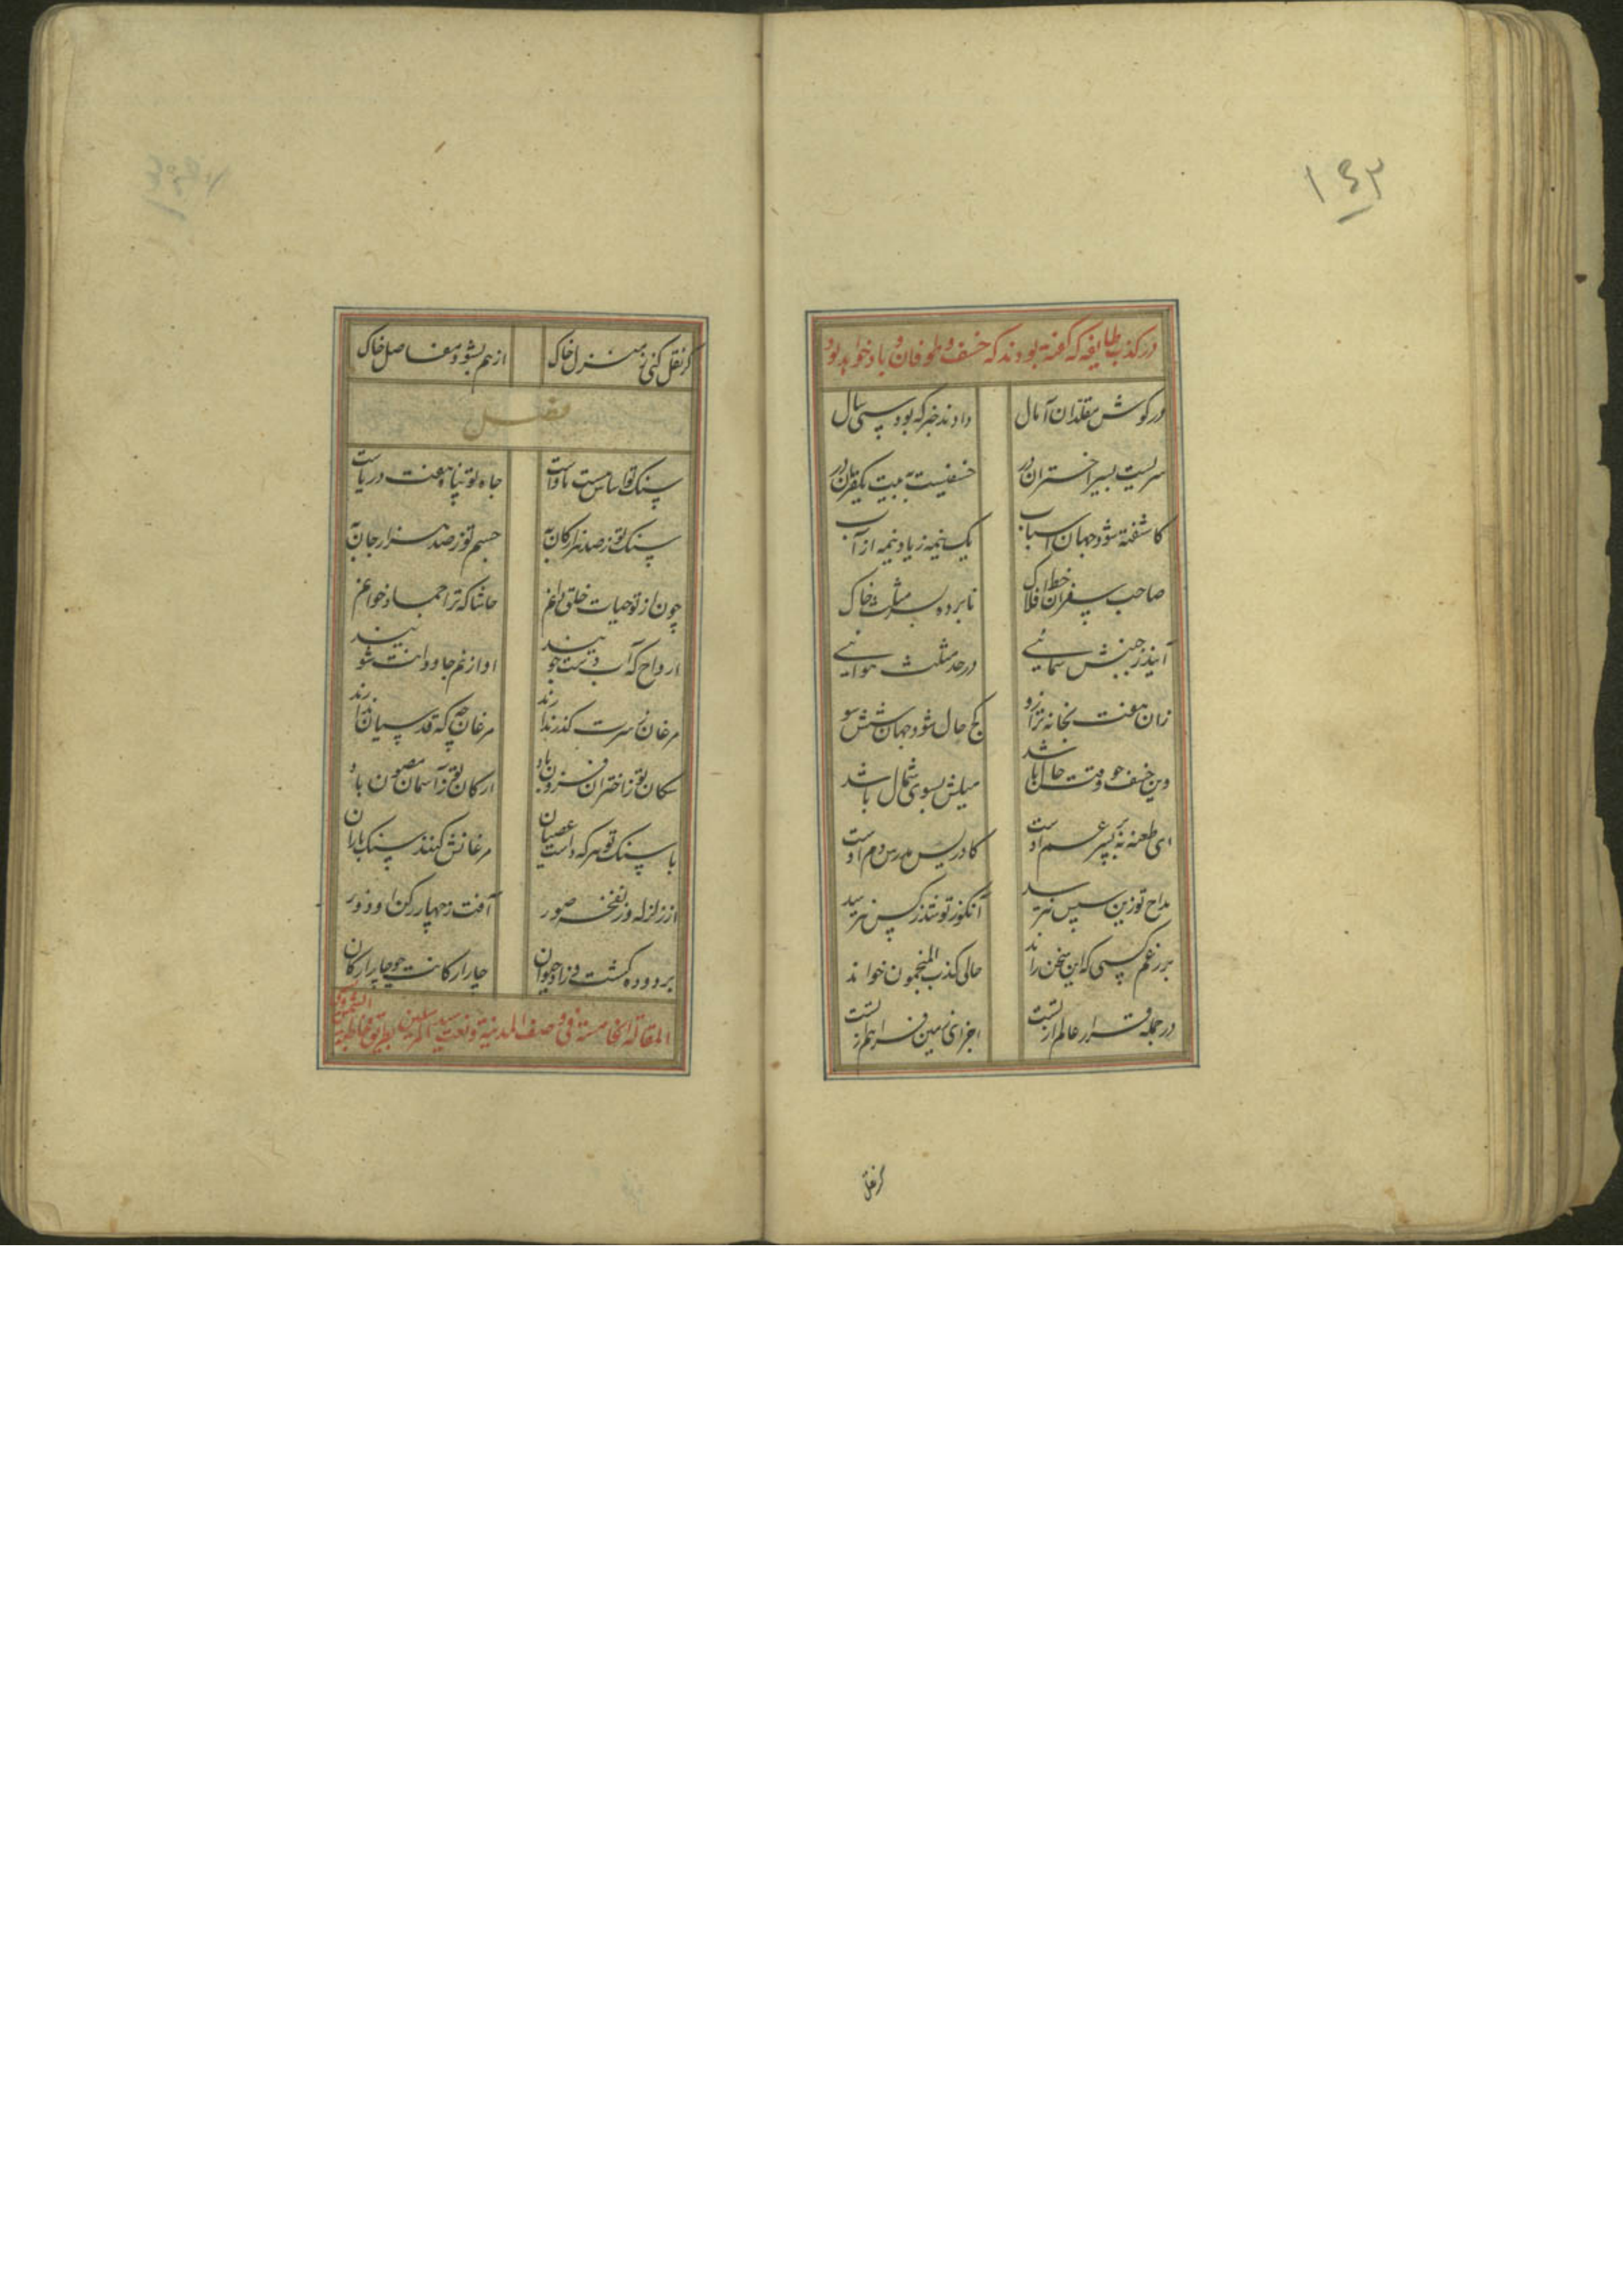 ۱۴۳
در کذب طایفه که گفته بودند که خسف و طوفان و باد خواهد بود
در گوش مقلدان آمال دادند خبر که بود سی سال
سریست بسیر اختران در خسفیست به بیت یکقران در
کاشفته شود جهان اسباب یک نیمه ز باد و نیمه از آب
صاحب سفران خط افلاک نابرده بسر مثلث خاک
آیند ز جنبش سمائی در حد مثلث هوائی
زان هفت بخانه ترازو کج حال شود جهان شش سو
وین خسف چو وقت حال باشد میلش بسوی شمال باشد
ای طعنه نه بر پسر عم اوست کادریس مدرس دم اوست
مداح تو زین سپس نترسد آنکو ز تو شد ز کس نترسد
بر رغم کسی که این سخن راند حالی کذب المنجمون خواند
در جمله قرار عالم از تست اجزای زمین فراهم از تست
گر نقل
گر نقل کنی ز منزل خاک از هم بشود مفاصل خاک
فصل
سنگ تو اساس هست ماواست جاه تو پناه هفت دریاست
سنگ تو ز صد هزار کان به جسم تو ز صد هزار جان به
چون از تو حیات خلق دانم حاشا که ترا جماد خوانم
ارواح که آب دست جویند او از غم جاودانت شویند
مرغان ز سرت گذر ندارند مرغان چه که قدسیان ندارند
سکان تو ز اختران فزون باد ارکان تو ز آسمان مصون باد
با سنگ تو هر که داشت عصیان مرغانش کنند سنگ باران
از زلزله وز نفخه صور آفت ز چهار رکن او دور
بر دوده کشت و زاد حیوان چار ارکانت چو چار ارکان
المقالة الخامسة فی وصف المدینة و نعت سید المرسلین بطریق مخاطبة الشمس